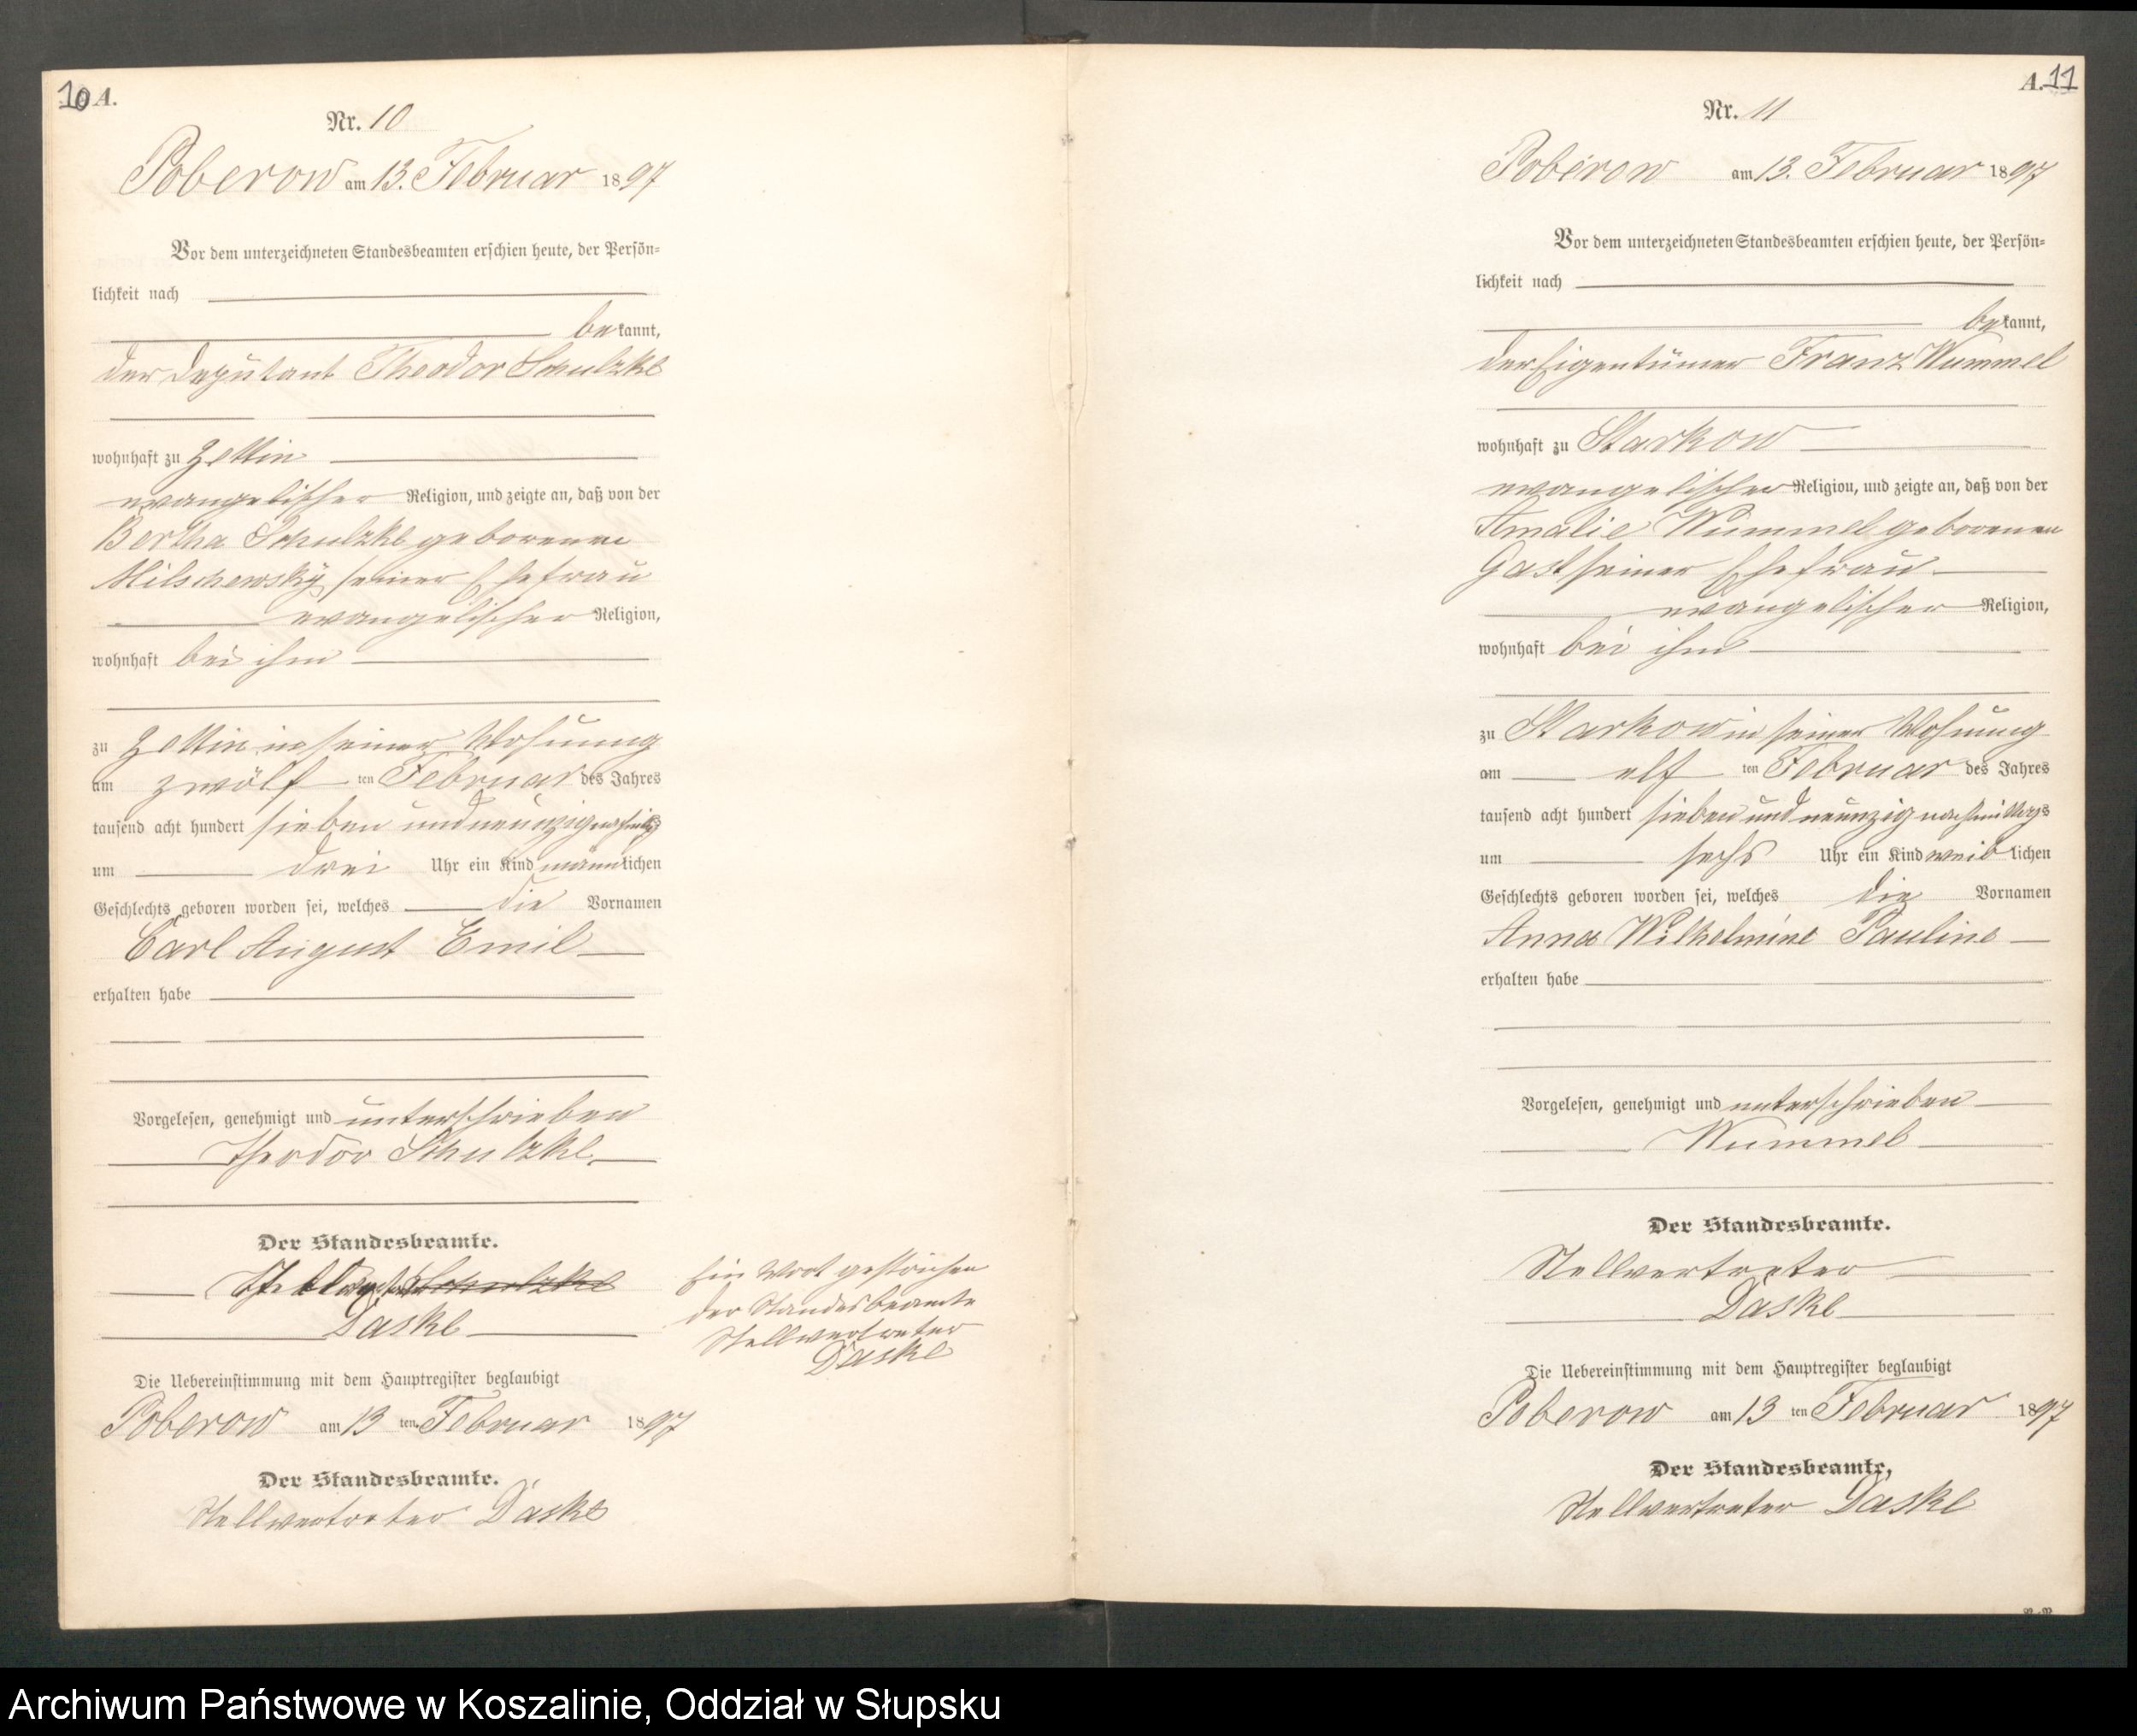 10 A.
Nr. 10
Poberow am 13. Februar 1897
Vor dem unterzeichneten Standesbeamten erschien heute, der Persön=
lichkeit nach
bekannt,
der Deputant Theodor Schulzke
wohnhaft zu Zettin
evangelischer Religion, und zeigte an, daß von der
Bertha Schulzke geborenen
Milschewsky seiner Ehefrau
evangelischer Religion,
wohnhaft bei ihm
zu Zettin in seiner Wohnung
am zwölf ten Februar des Jahres
tausend acht hundert sieben und neunzig nachmittags
um drei Uhr ein Kind männlichen
Geschlechts geboren worden sei, welches die Vornamen
Carl August Emil
erhalten habe
Vorgelesen, genehmigt und unterschrieben
Theodor Schulzke
Der Standesbeamte.
Schulzke
Daske
Ein Wort gestrichen
der Standesbeamte
Stellvertreter
Daske
Die Uebereinstimmung mit dem Hauptregister beglaubigt
Poberow am 13 ten Februar 1897
Der Standesbeamte.
Stellvertreter Daske
A. 11
Nr. 11
Poberow am 13. Februar 1897
Vor dem unterzeichneten Standesbeamten erschien heute, der Persön=
lichkeit nach
bekannt,
der Eigentümer Franz Wummel
wohnhaft zu Starkow
evangelischer Religion, und zeigte an, daß von der
Amalie Wummel geborenen
Gast seiner Ehefrau
evangelischer Religion,
wohnhaft bei ihm
zu Starkow in seiner Wohnung
am elf ten Februar des Jahres
tausend acht hundert sieben und neunzig nachmittags
um sechs Uhr ein Kind weiblichen
Geschlechts geboren worden sei, welches die Vornamen
Anna Wilhelmine Pauline
erhalten habe
Vorgelesen, genehmigt und unterschrieben
Wummel
Der Standesbeamte.
Stellvertreter
Daske
Die Uebereinstimmung mit dem Hauptregister beglaubigt
Poberow am 13 ten Februar 1897
Der Standesbeamte,
Stellvertreter Daske
Archiwum Państwowe w Koszalinie, Oddział w Słupsku